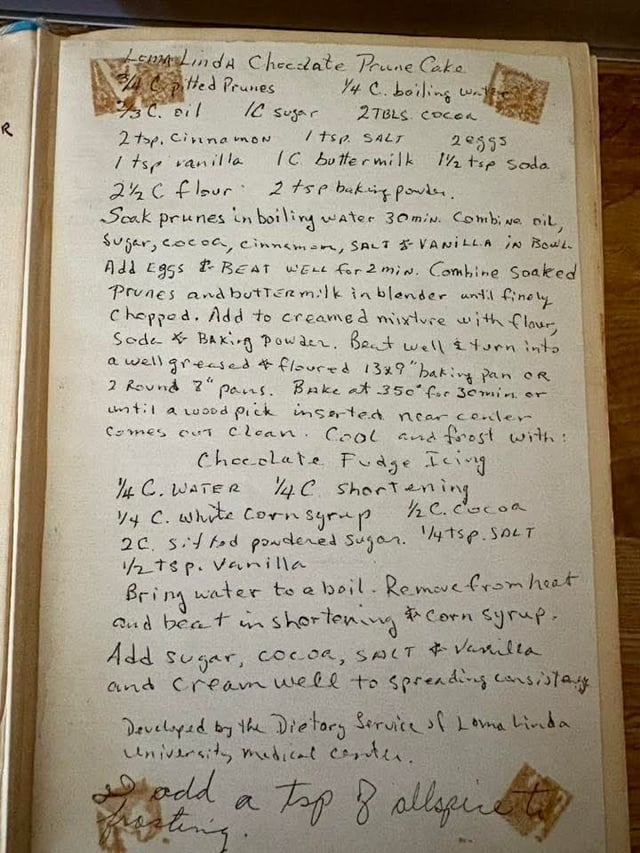 Loma Linda Chocolate Prune Cake
3/4 C. pitted Prunes 1/4 C. boiling water
2/3 C. oil 1C sugar 2 TBLS. cocoa
2 tsp. cinnamon 1 tsp. SALT 2 eggs
1 tsp vanilla 1C. buttermilk 1 1/2 tsp soda
2 1/2 C flour 2 tsp baking powder.
Soak prunes in boiling water 30 min. Combine oil,
Sugar, cocoa, cinnamon, SALT & VANILLA in Bowl.
Add Eggs & BEAT WELL for 2 min. Combine Soaked
Prunes and buttermilk in blender until finely
Chopped. Add to creamed mixture with flour,
Soda & Baking Powder. Beat well & turn into
a well greased & floured 13x9" baking pan OR
2 Round 8" pans. Bake at 350° for 30 min. or
until a woodpick inserted near center
comes out clean. Cool and frost with:
Chocolate Fudge Icing
1/4 C. WATER 1/4 C shortening
1/4 C. white corn syrup 1/2 C. cocoa
2C. sifted powdered sugar. 1/4 tsp. SALT
1/2 tsp. Vanilla
Bring water to a boil. Remove from heat
and beat in shortening & corn syrup.
Add sugar, cocoa, SALT & Vanilla
and cream well to spreading consistency
Developed by the Dietary Service of Loma Linda
University medical center.
I add a tsp of allspice to
frosting.
R